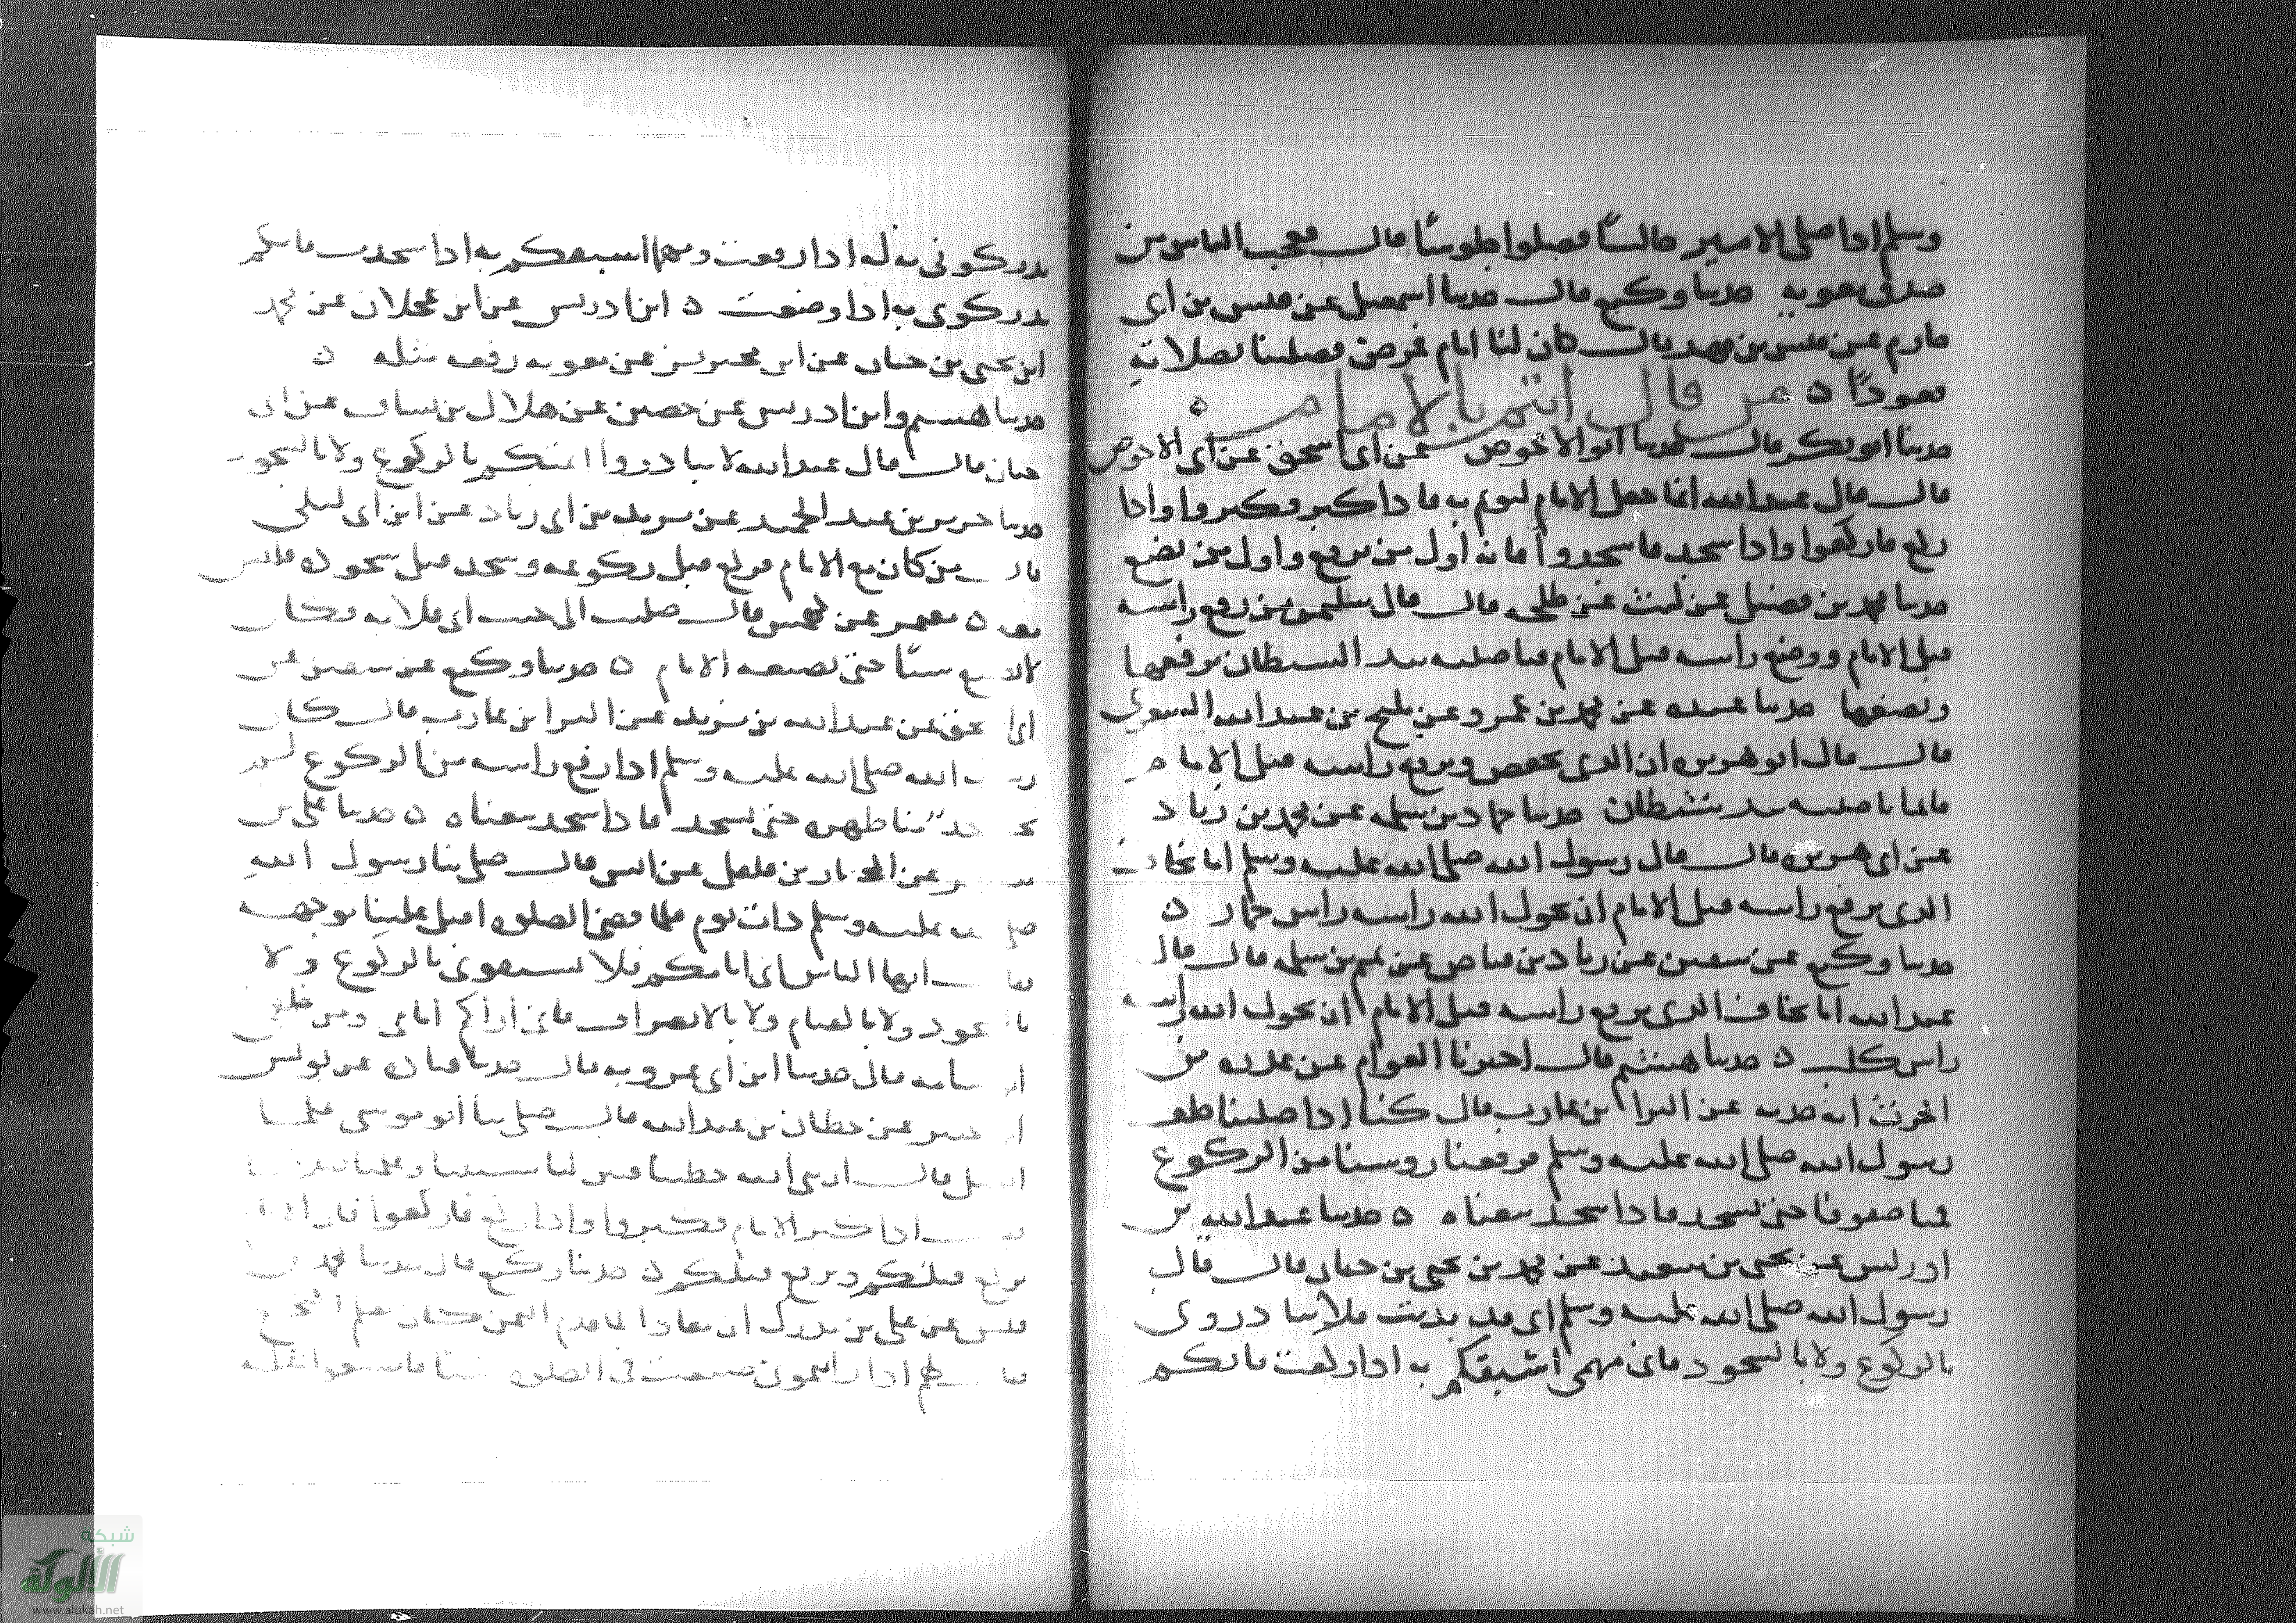 وسلم اذا صلى الامير جالسًا فصلوا جلوسًا قال فعجب الناس من
صدق معوية حدثنا وكيع قال حدثنا اسمعيل عن قيس بن ابى
حازم عن قيس بن قهد قال كان لنا امام فمرض فصلينا بصلاته
قعودًا ٥ من قال ائتم بالامام
حدثنا ابو بكر قال حدثنا ابو الاحوص عن ابى اسحق عن ابى الاحوص
قال قال عبد الله انما جعل الامام ليؤتم به فاذا كبر فكبروا واذا
ركع فاركعوا واذا سجد فاسجدوا فانه اول من يرفع واول من يضع
حدثنا محمد بن فضيل عن ليث عن طلحه قال قال سلمن من رفع راسه
قبل الامام ووضع راسه قبل الامام فناصيته بيد الشيطان يرفعها
ويضعها حدثنا عبده عن محمد بن عمرو عن مليح بن عبد الله السعدى
قال قال ابو هريره ان الذى يخفض ويرفع راسه قبل الامام
فانما ناصيته بيد شيطان حدثنا حماد بن سلمه عن محمد بن زياد
عن ابى هريره قال قال رسول الله صلى الله عليه وسلم اما يخاف
الذى يرفع راسه قبل الامام ان يحول الله راسه راس حمار ٥
حدثنا وكيع عن سفين عن زياد بن فياض عن تميم بن سلمه قال قال
عبد الله اما يخاف الذى يرفع راسه قبل الامام ان يحول الله راسه
راس كلب ٥ حدثنا هشيم قال اخبرنا العوام عن عذره بن
الحرث انه حدثه عن البرا بن عازب قال كنا اذا صلينا خلف
رسول الله صلى الله عليه وسلم فرفعنا روسنا من الركوع
قمنا صفوفا حتى يسجد فاذا سجد تبعناه ٥ حدثنا عبد الله بن
ادريس عن يحيى بن سعيد عن محمد بن يحيى بن حبان قال قال
رسول الله صلى الله عليه وسلم انى قد بدنت فلا تبادرونى
بالركوع ولا بالسجود فانى مهمى اسبقكم به اذا ركعت فانكم
تدركونى به اذا رفعت ومهما اسبقكم به اذا سجدت فانكم
تدركونى به اذا وضعت ٥ ابن ادريس عن ابن عجلان عن محمد
ابن يحيى بن حبان عن ابن محيريز عن معويه رفعه مثله ٥
حدثنا هشيم وابن ادريس عن حصين عن هلال بن يساف عن ابى
حيان قال قال عبد الله لا تبادروا ائمتكم بالركوع ولا بالسجود
حدثنا جرير بن عبد الحميد عن يزيد بن ابى زياد عن ابن ابى ليلى
قال من كان مع الامام فركع قبل ركوعه وسجد قبل سجوده فليس
معه ٥ معمر عن قال صليت الى جنب ابى قلابه فكان
لا يضع شيئًا حتى يضعه الامام ٥ حدثنا وكيع عن سفين عن
ابى ا حق عن عبد الله بن يزيد عن البرا بن عازب قال كان
ر الله صلى الله عليه وسلم اذا رفع راسه من الركوع لم
يحـ حد منا ظهره حتى يسجد فاذا سجد تبعناه ٥ حدثنا على بن
مسـ ـر عن المختار بن فلفل عن انس قال صلى بنا رسول الله
صلى الله عليه وسلم ذات يوم فلما قضى الصلوه اقبل علينا بوجهه
فقا ايها الناس انى امامكم فلا تسبقونى بالركوع ولا
با جود ولا بالقيام ولا بالانصراف فانى اراكم امامى ومن خلفى
ا سامه قال حدثنا ابن ابى عروبه قال حدثنا قتاده عن يونس
ا جبير عن حطان بن عبد الله قال صلى بنا ابو موسى فلما
ا ـل قال ان نبى الله خطبنا فبين لنا سنتنا وعلمنا
اذا كبر الامام فكبروا واذا ركع فاركعوا فان
يركع قبلكم ويرفع قبلكم ٥ حدثنا وكيع قال حدثنا محمد بن
قيس عن على بن مدرك ان معاذا لما قدم اليمن